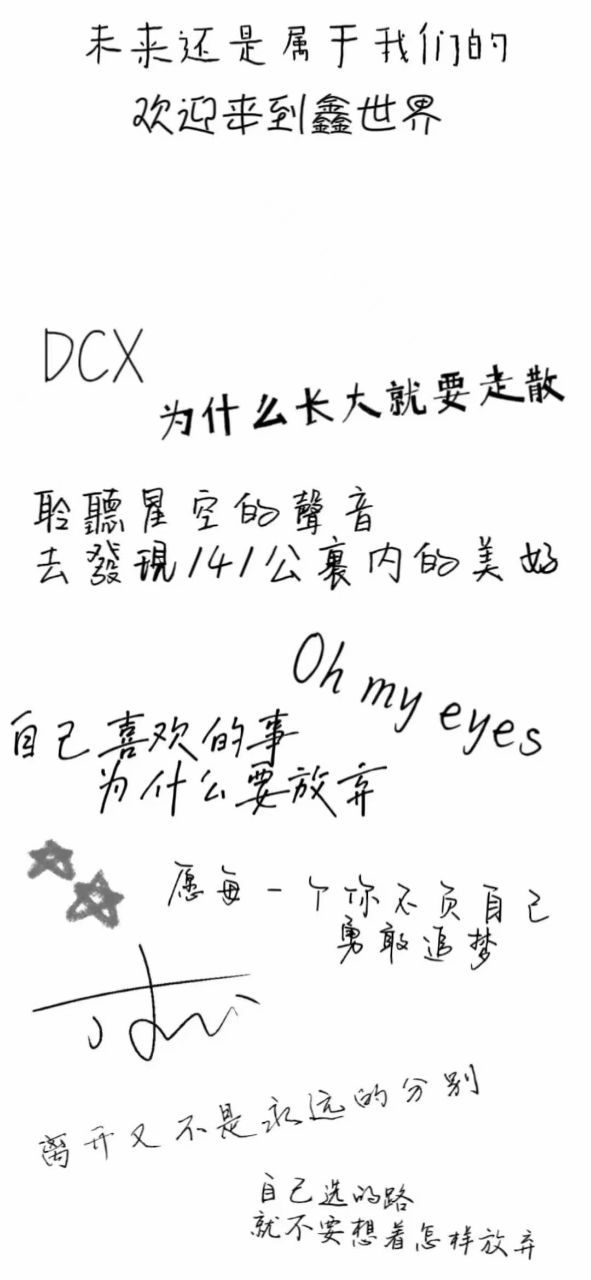 未来还是属于我们的
欢迎来到鑫世界
DCX
为什么长大就要走散
聆聽星空的聲音
去發現141公裏内的美好
Oh my eyes
自己喜欢的事
为什么要放弃
愿每一个你不负自己
勇敢追梦
离开又不是永远的分别
自己选的路
就不要想着怎样放弃